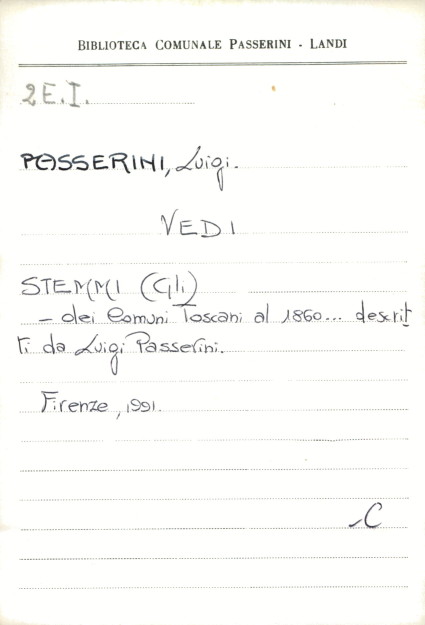 BIBLIOTECA COMUNALE PASSERINI - LANDI
2E.I.
PASSERINI, Luigi.
VEDI
STEMMI (Gli)
- dei Comuni Toscani al 1860... descrit
ti da Luigi Passerini.
Firenze, 1991.
C